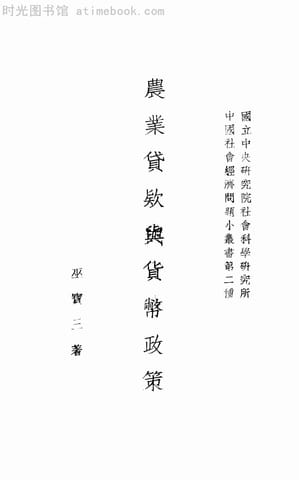 时光图书馆 · atimebook.com
國立中央硏究院社會科學硏究所
中國社會經濟問題小叢書第二種
農業貸款與貨幣政策
巫寶三著